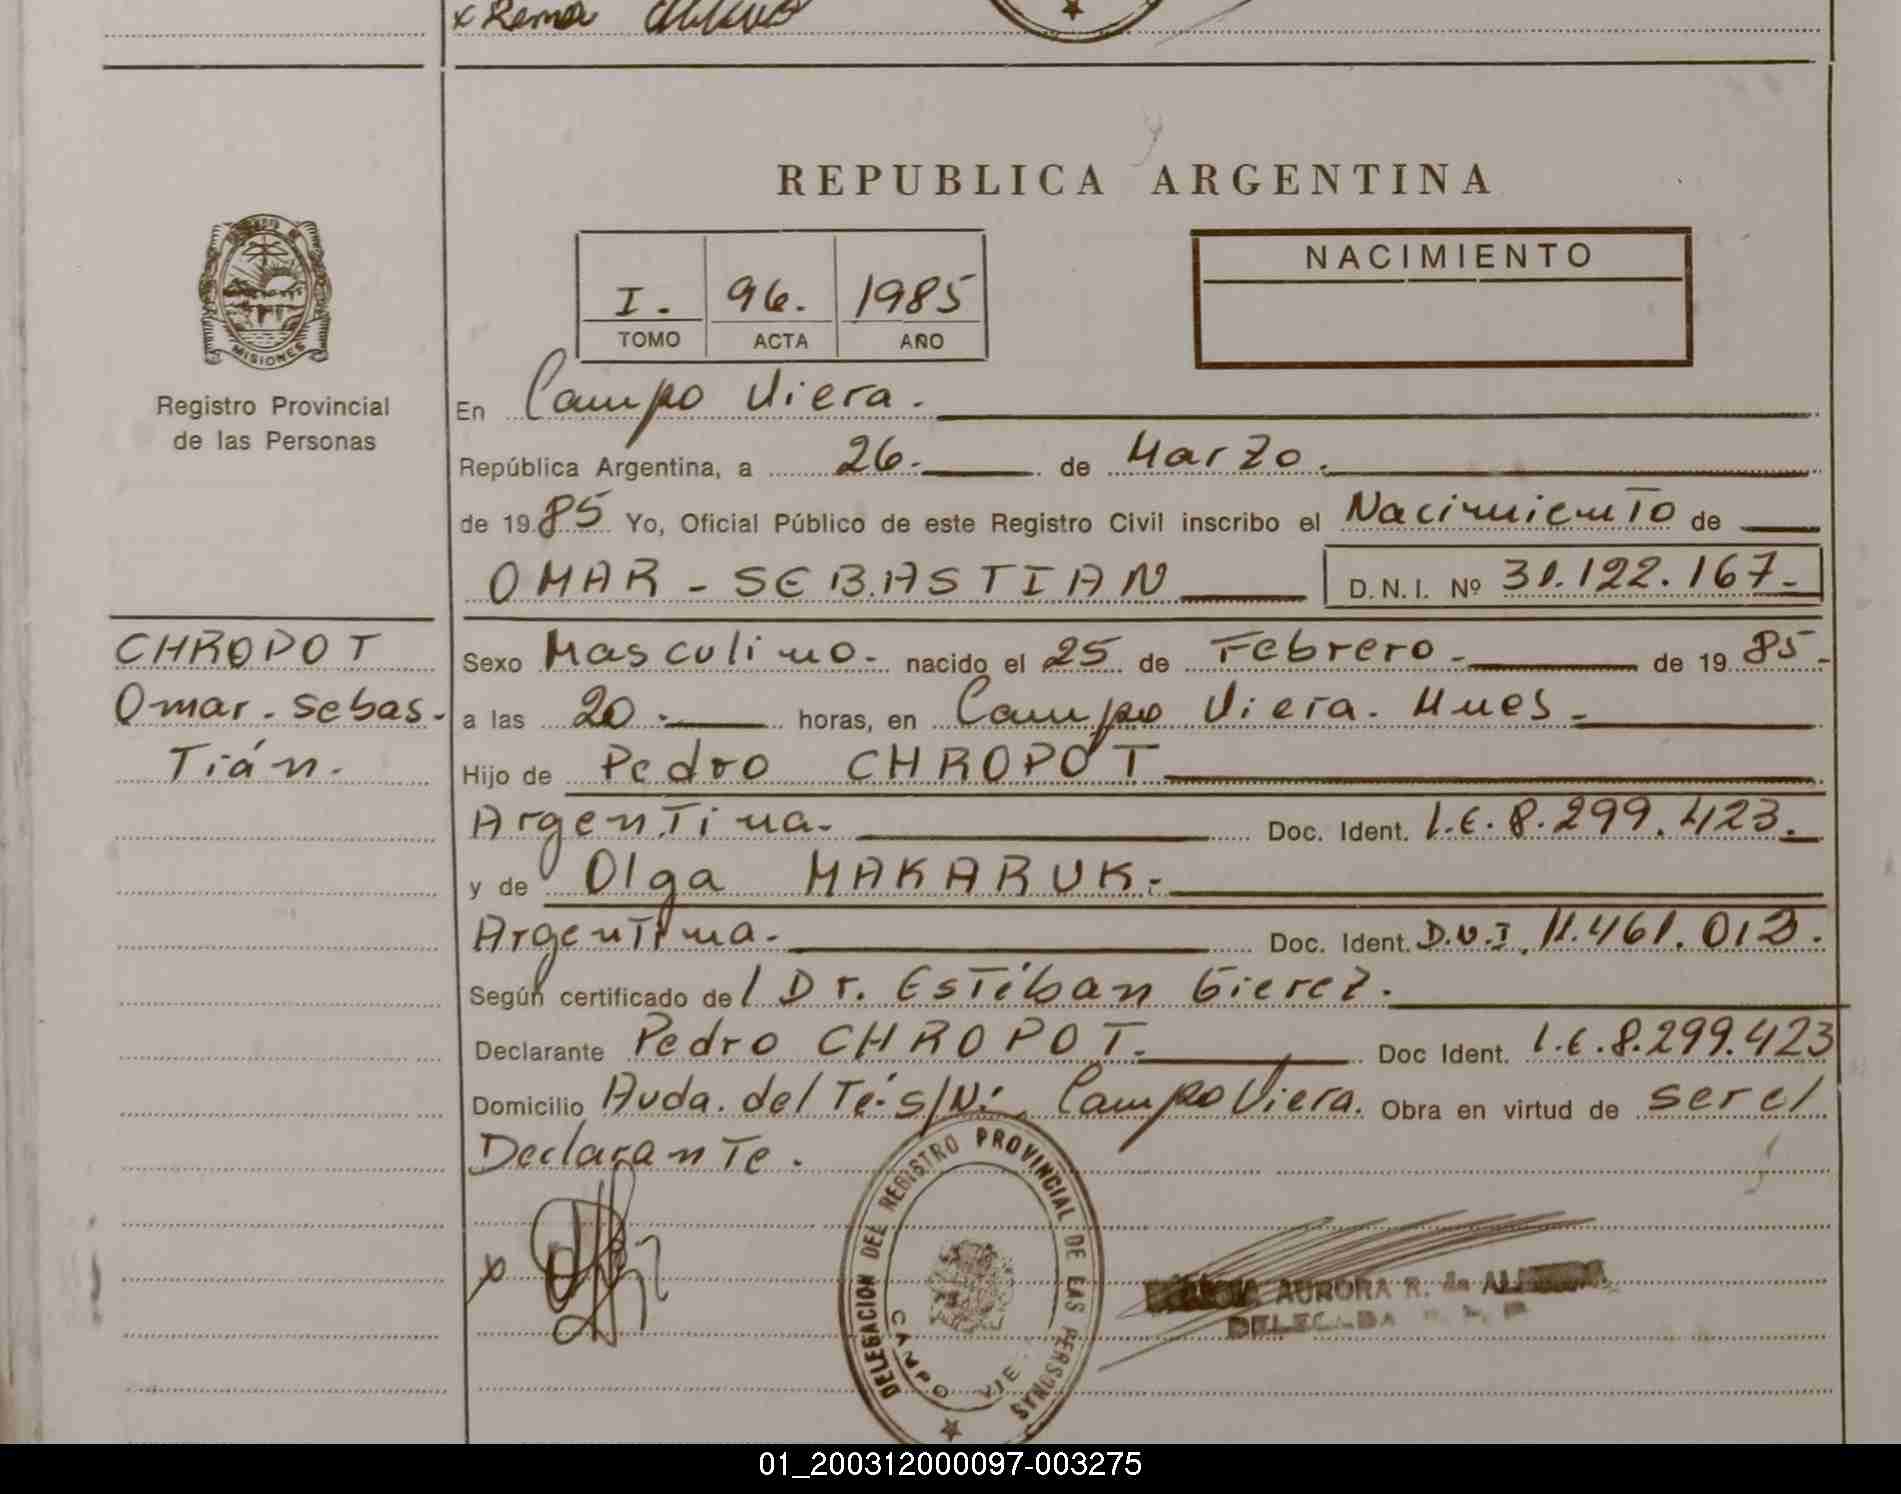 x Rema
REPUBLICA ARGENTINA
I. 96. 1985
TOMO ACTA AÑO
NACIMIENTO
MISIONES
Registro Provincial
de las Personas
En Campo Viera.
República Argentina, a 26. de Marzo.
de 1985 Yo, Oficial Público de este Registro Civil inscribo el Nacimiento de
OMAR - SEBASTIAN D.N.I. Nº 31.122.167.-
CHROPOT
Omar. Sebas-
Tián.
Sexo Masculino.- nacido el 25 de Febrero.- de 1985.-
a las 20.- horas, en Campo Viera. Mnes.-
Hijo de Pedro CHROPOT
Argentina.- Doc. Ident. L.E. 8.299.423.
y de Olga MAKARUK.-
Argentina.- Doc. Ident. D.N.I. 11.461.013.
Según certificado del Dr. Estéban Gierez.
Declarante Pedro CHROPOT. Doc Ident. L.E. 8.299.423
Domicilio Avda. del Té- s/N: Campo Viera. Obra en virtud de ser el
Declarante.
x
DELEGACION DEL REGISTRO PROVINCIAL DE LAS PERSONAS
CAMPO VIE
AURORA R. de
DELEGADA
01_200312000097-003275